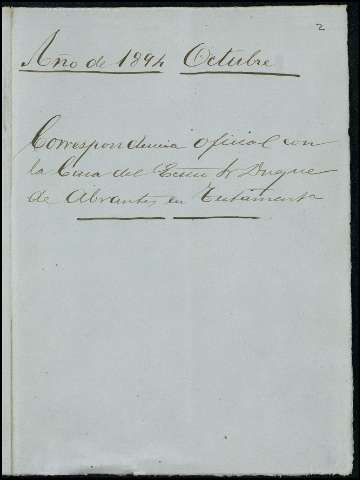 2
Año de 1894 Octubre
Correspondencia oficial con
la Casa del Excmo Sr Duque
de Abrantes en Testamenta